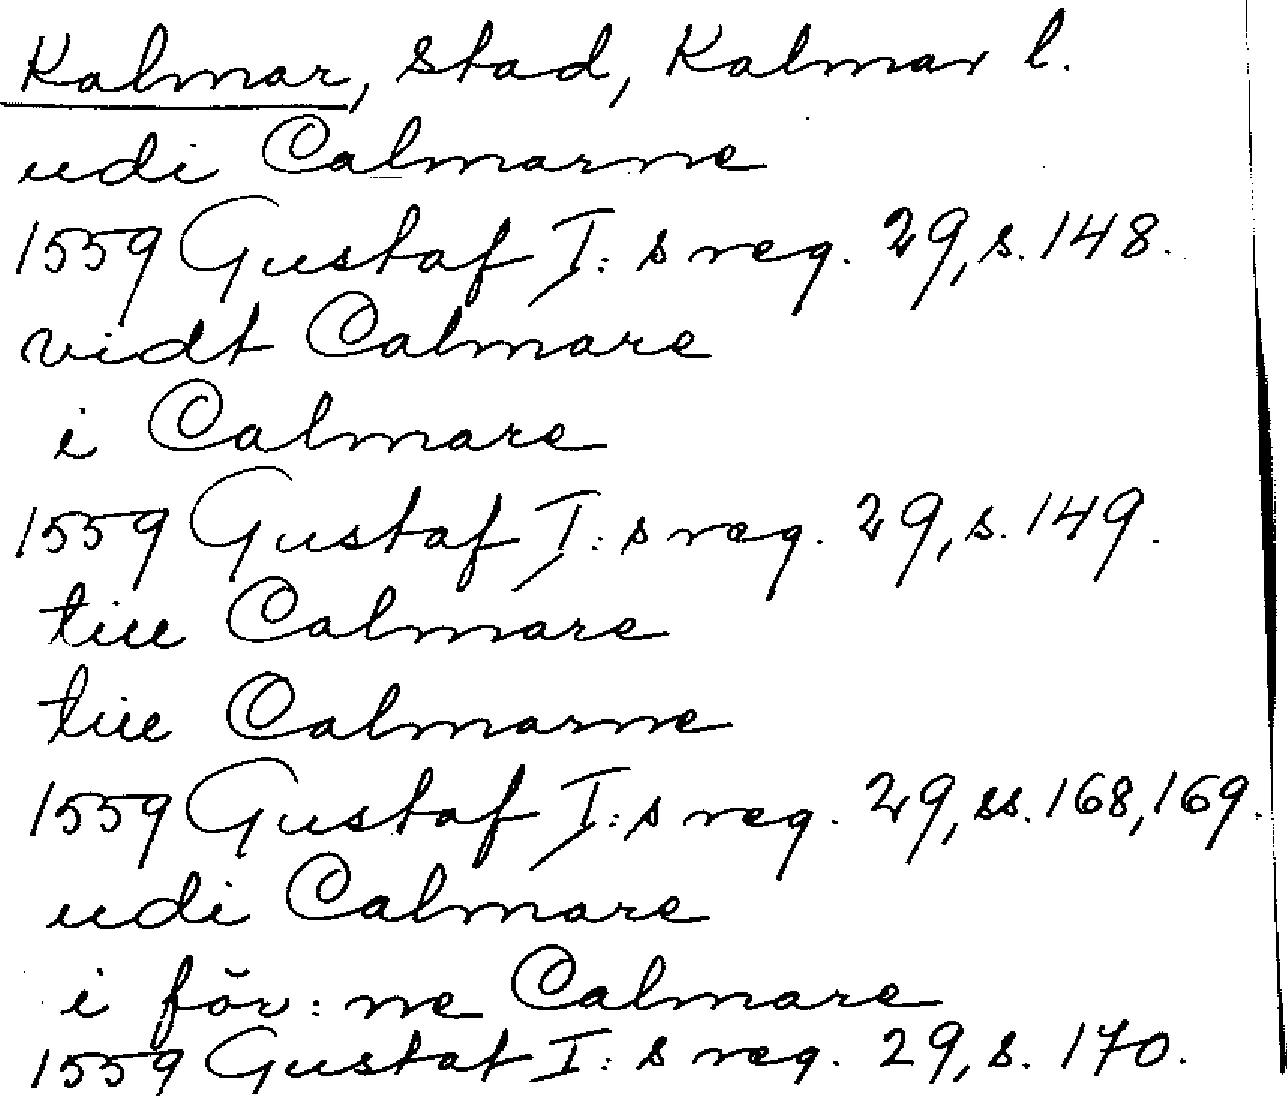 Kalmar, stad, Kalmar l.
udi Calmarne
1559 Gustaf I:s reg. 29, s. 148.
vidt Calmare
i Calmare
1559 Gustaf I:s reg. 29, s. 149.
till Calmare
till Calmarne
1559 Gustaf I:s reg. 29, ss. 168, 169.
udi Calmare
i för:ne Calmare
1559 Gustaf I:s reg. 29, s. 170.